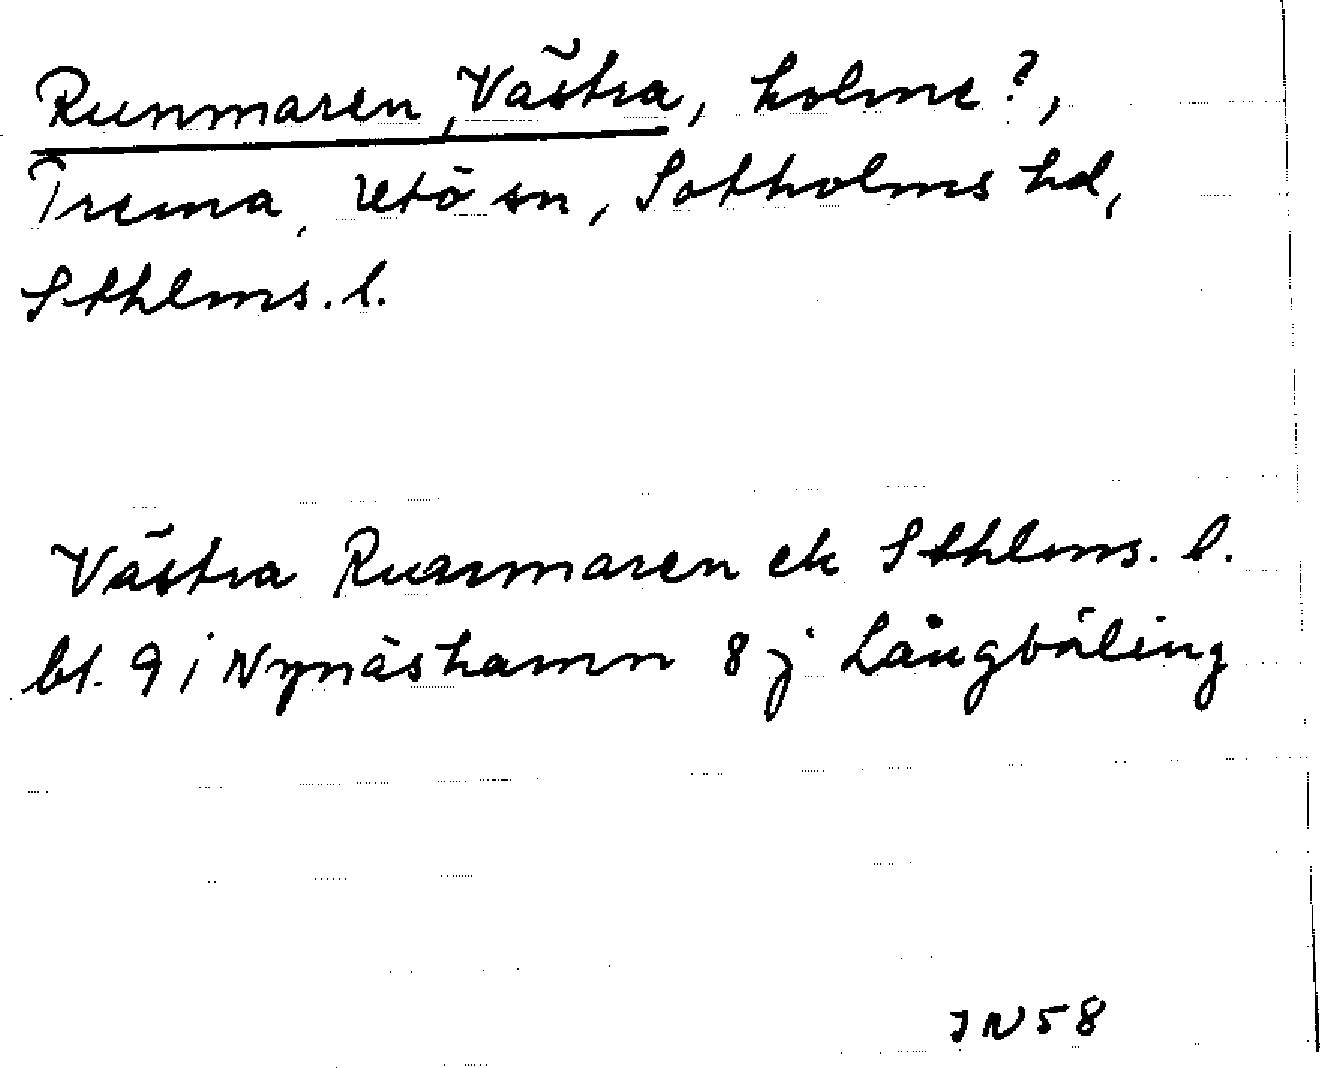 Runmaren, Västra, holme?,
Trema, Utö sn, Sotholms hd,
Sthlms. l.
Västra Runmaren ek Sthlms. l.
bl. 9 i Nynäshamn 8 j Långbäling
JN58